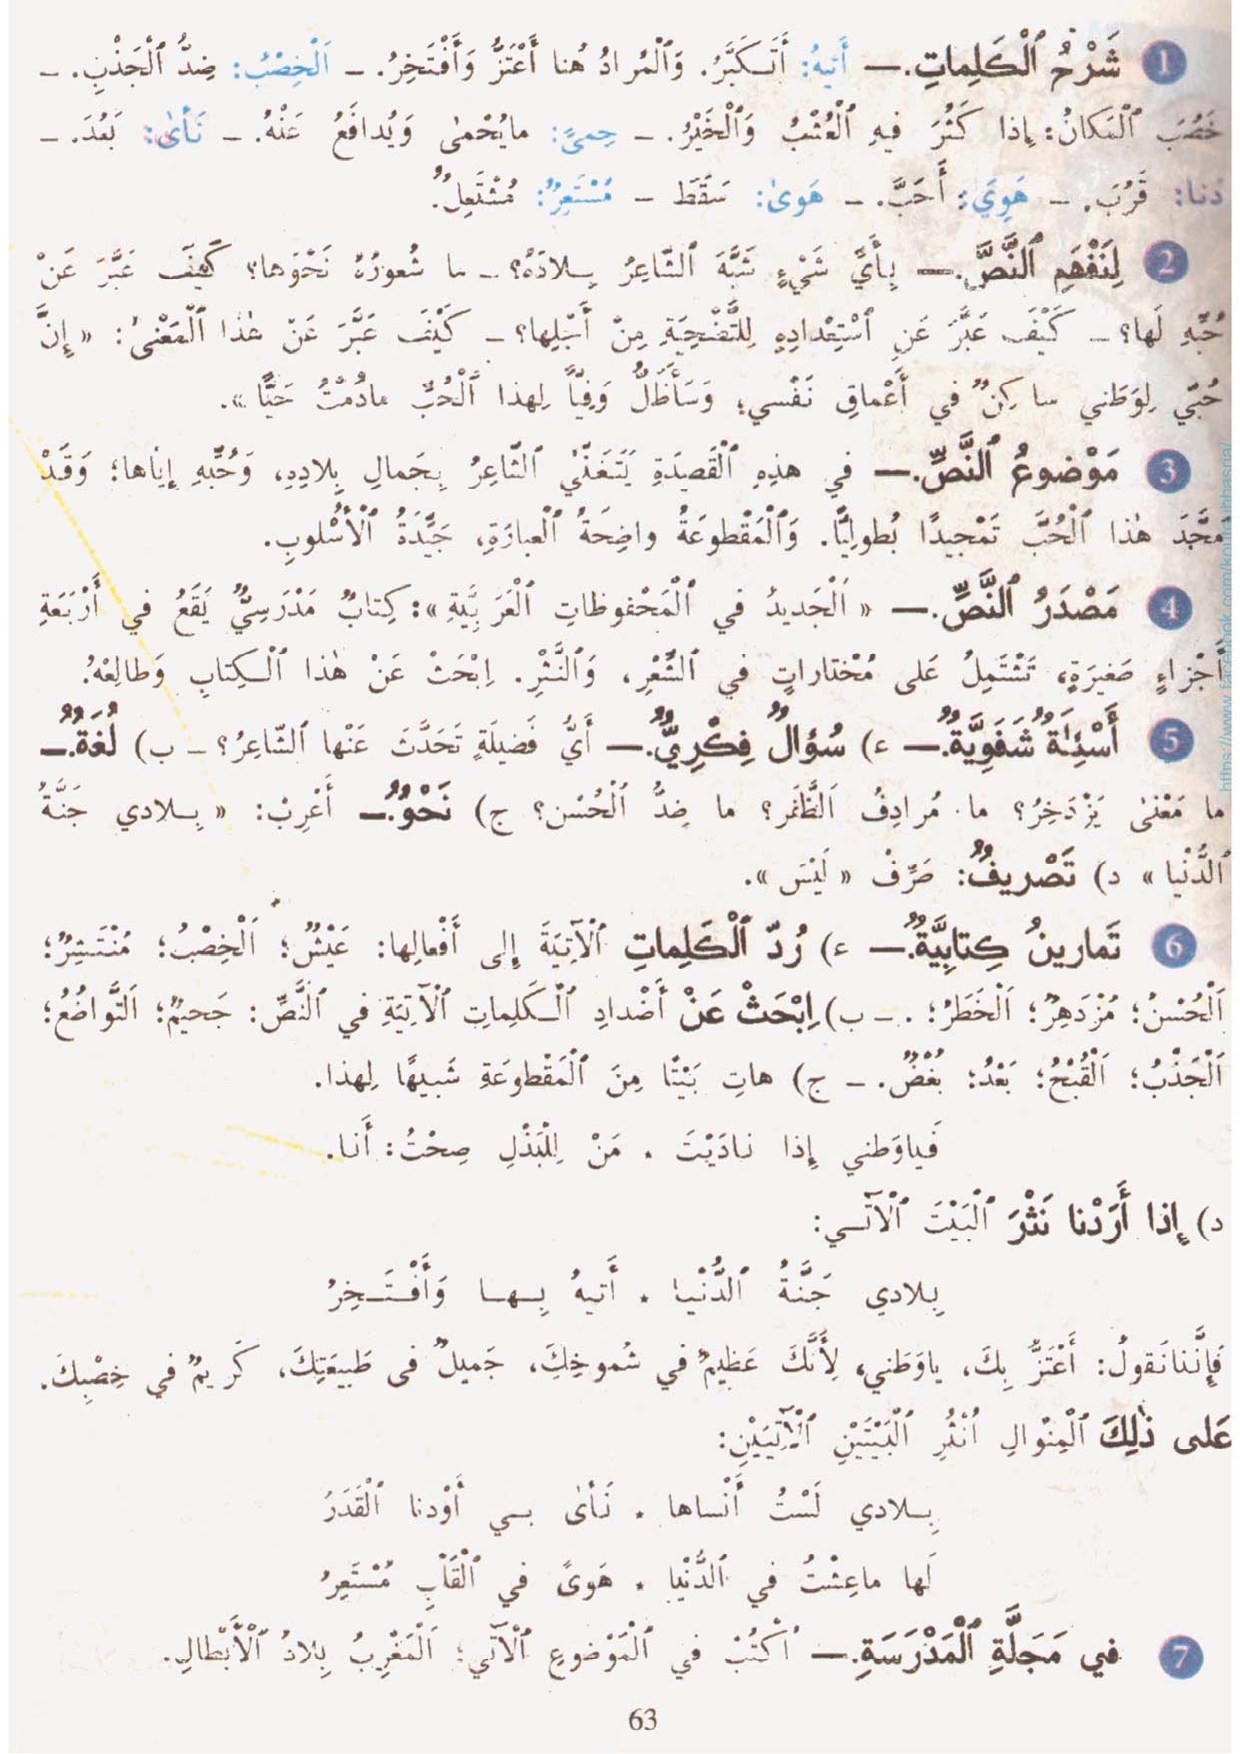 1 شَرْحُ ٱلْكَلِماتِ.— أَتيهُ: أَتَـكَبَّرُ. وَٱلْمُرادُ هُنا أَعْتَزُّ وَأَفْتَخِرُ. – اَلْخِصْبُ: ضِدُّ ٱلْجَذْبِ. –
خَصُبَ ٱلْمَكانُ: إِذا كَثُرَ فيهِ ٱلْعُشْبُ وَٱلْخَيْرُ. – حِمىً: مايُحْمٰى وَيُدافَعُ عَنْهُ. – نَأىٰ: بَعُدَ. –
دَنا: قَرُبَ. – هَوِيَ: أَحَبَّ. – هَوىٰ: سَقَطَ – مُسْتَعِرٌ: مُشْتَعِلٌ.
2 لِنَفْهَمِ ٱلنَّصَّ.— بِأَيِّ شَيْءٍ شَبَّهَ ٱلشّاعِرُ بِـلادَهُ؟ – ما شُعورُهُ نَحْوَها؟ كَيْفَ عَبَّرَ عَنْ
حُبِّهِ لَها؟ – كَيْفَ عَبَّرَ عَنِ ٱسْتِعْدادِهِ لِلتَّضْحِيَةِ مِنْ أَجْلِها؟ – كَيْفَ عَبَّرَ عَنْ هٰذا ٱلْمَعْنىٰ: « إِنَّ
حُبّي لِوَطَني ساكِنٌ في أَعْماقِ نَفْسي؛ وَسَأَظَلُّ وَفِيّاً لِهذا ٱلْحُبِّ مادُمْتُ حَيًّا ».
3 مَوْضوعُ ٱلنَّصِّ.— في هذِهِ ٱلْقَصيدَةِ يَتَغَنّىٰ ٱلشّاعِرُ بِجَمالِ بِلادِهِ، وَحُبِّهِ إِيّاها؛ وَقَدْ
مَجَّدَ هٰذا ٱلْحُبَّ تَمْجيدًا بُطولِيًّا. وَٱلْمَقْطوعَةُ واضِحَةُ ٱلْعِبارَةِ، جَيِّدَةُ ٱلْأُسْلوبِ.
4 مَصْدَرُ ٱلنَّصِّ.— « اَلْجَديدُ في ٱلْمَحْفوظاتِ ٱلْعَرَبِيَّةِ »: كِتابٌ مَدْرَسِيٌّ يَقَعُ في أَرْبَعَةِ
أَجْزاءٍ صَغيرَةٍ، تَشْتَمِلُ عَلى مُخْتاراتٍ في ٱلشِّعْرِ، وَٱلنَّثْرِ. اِبْحَثْ عَنْ هٰذا ٱلْـكِتابِ وَطالِعْهُ.
5 أَسْئِلَةٌ شَفَوِيَّةٌ.— ء) سُؤالٌ فِكْرِيٌّ.— أَيُّ فَضيلَةٍ تَحَدَّثَ عَنْها ٱلشّاعِرُ؟ – ب) لُغَةٌ.—
ما مَعْنىٰ يَزْدَخِرُ؟ ما مُرادِفُ اَلظَّفَر؟ ما ضِدُّ ٱلْحُسْن؟ ج) نَحْوٌ.— أَعْرِبْ: « بِـلادي جَنَّةُ
ٱلدُّنْيا » د) تَصْريفٌ: صَرِّفْ « لَيْسَ ».
6 تَمارينُ كِتابِيَّةٌ.— ء) رُدّ ٱلْكَلِماتِ ٱلْآتِيَةَ إِلى أَفْعالِها: عَيْشٌ؛ اَلْخِصْبُ؛ مُنْتَشِرٌ؛
اَلْحُسْنُ؛ مُزْدَهِرٌ؛ اَلْخَطَرُ؛ . – ب) اِبْحَثْ عَنْ أَضْدادِ ٱلْـكَلِماتِ ٱلْآتِيَةِ في ٱلنَّصِّ: جَحيمٌ؛ اَلتَّواضُعُ؛
اَلْجَذْبُ؛ اَلْقُبْحُ؛ بَعْدُ؛ بُغْضٌ. – ج) هاتِ بَيْتًا مِنَ ٱلْمَقْطوعَةِ شَبيهًا لِهذا.
فَياوَطَني إِذا نادَيْتَ . مَنْ لِلْبَذْلِ صِحْتُ: أَنا.
د) إِذا أَرَدْنا نَثْرَ ٱلْبَيْتَ ٱلْآتـي:
بِلادي جَنَّةُ ٱلدُّنْيا . أَتيهُ بِـهـا وَأَفْـتَـخِرُ
فَإِنَّنانَقولُ: أَعْتَزُّ بِكَ، ياوَطَني، لِأَنَّكَ عَظيمٌ في شُموخِكَ، جَميلٌ فى طَبيعَتِكَ، كَريمٌ في خِصْبِكَ.
عَلى ذٰلِكَ ٱلْمِنْوالِ اُنْثُرِ ٱلْبَيْتَيْنِ ٱلْآتِيَيْنِ:
بِـلادي لَسْتُ أَنْساها . نَأىٰ بـي أَوْدنا ٱلْقَدَرُ
لَها ماعِشْتُ في ٱلدُّنْيا . هَوىً في ٱلْقَلْبِ مُسْتَعِرُ
7 في مَجَلَّةِ ٱلْمَدْرَسَةِ.— اُكْتُبْ في ٱلْمَوْضوعِ ٱلْآتي: اَلْمَغْرِبُ بِلادُ ٱلْأَبْطالِ.
63